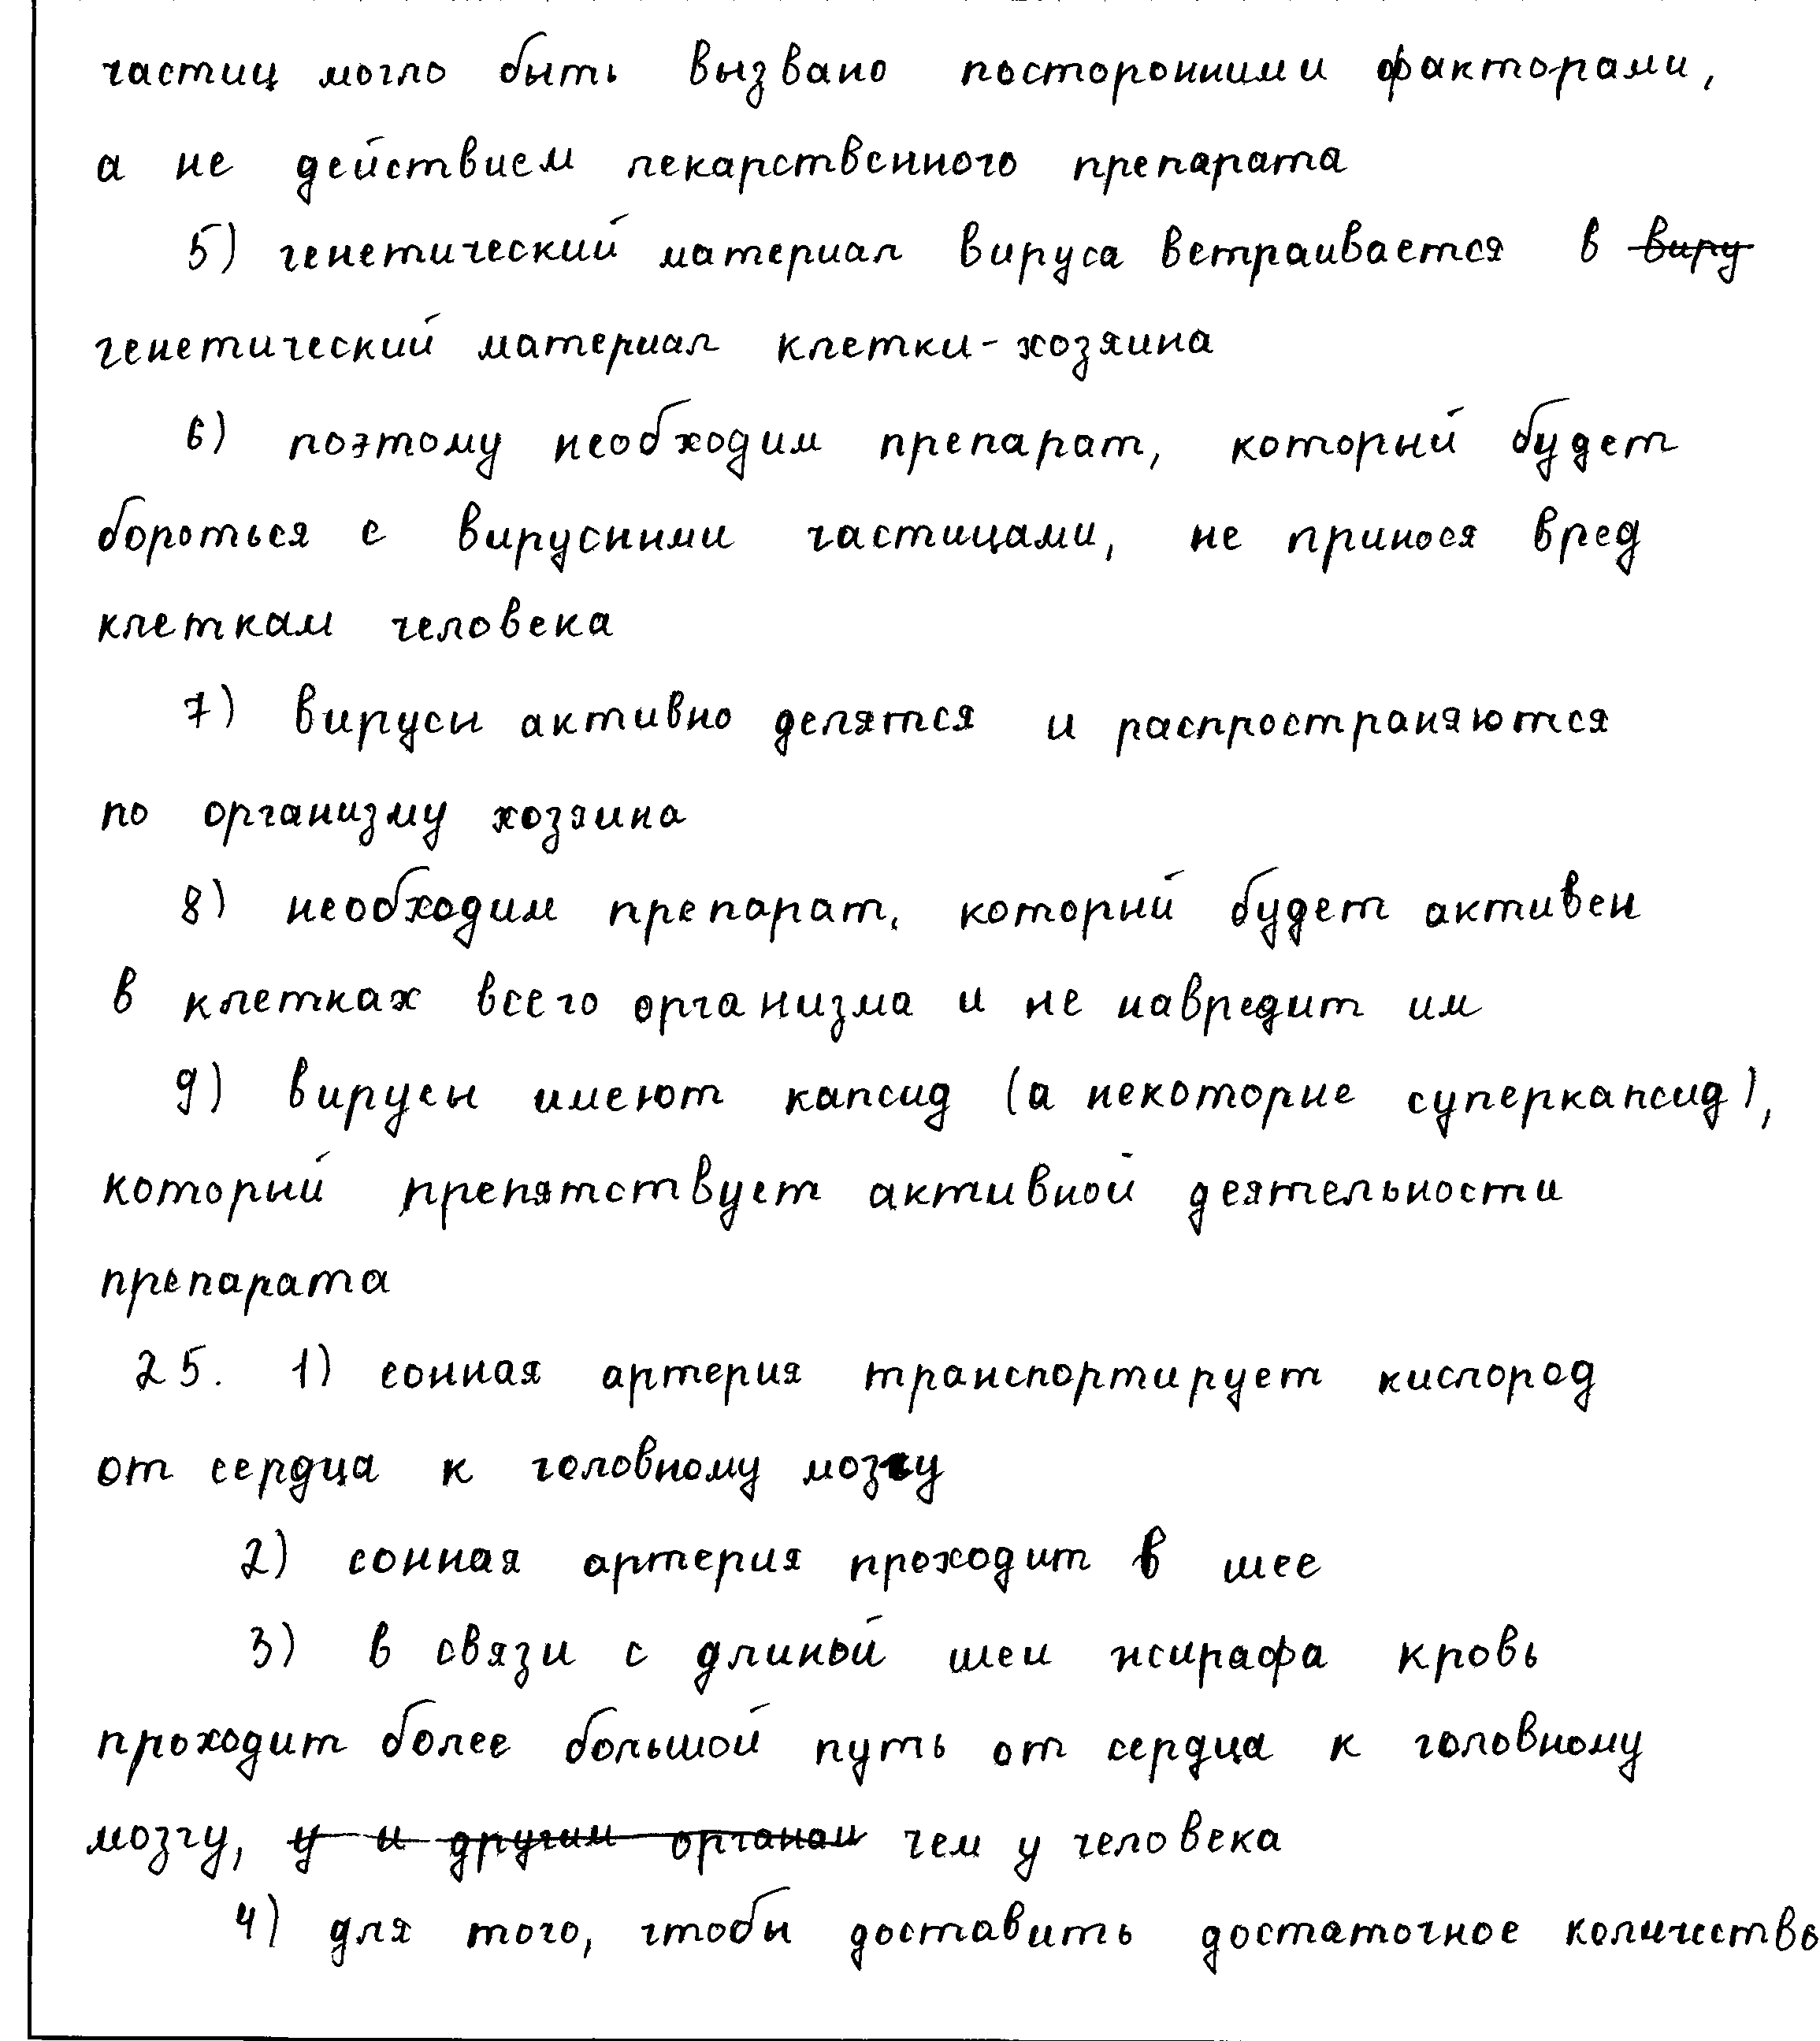 частиц могло быть вызвано посторонними факторами,
а не действием лекарственного препарата
5) генетический материал вируса ветраивается в ~~виру~~
генетический материал клетки-хозяина
6) поэтому необходим препарат, который будет
бороться с вирусными частицами, не принося вред
клеткам человека
7) вирусы активно делятся и распространяются
по организму хозяина
8) необходим препарат, который будет активен
в клетках всего организма и не навредит им
9) вирусы имеют капсид (а некоторые суперкапсид),
который препятствует активной деятельности
препарата
25. 1) сонная артерия транспортирует кислород
от сердца к головному мозгу
2) сонная артерия проходит в шее
3) в связи с длиной шеи жирафа кровь
проходит более большой путь от сердца к головному
мозгу, ~~у и другим органам~~ чем у человека
4) для того, чтобы доставить достаточное количество